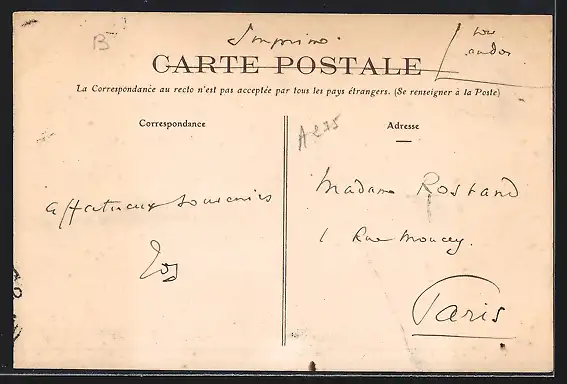 B
Imprimé.
CARTE POSTALE
La Correspondance au recto n'est pas acceptée par tous les pays étrangers. (Se renseigner à la Poste)
Correspondance
affectueux souvenirs
A235
Adresse
Madame Rostand
1 Rue Moncey.
Paris